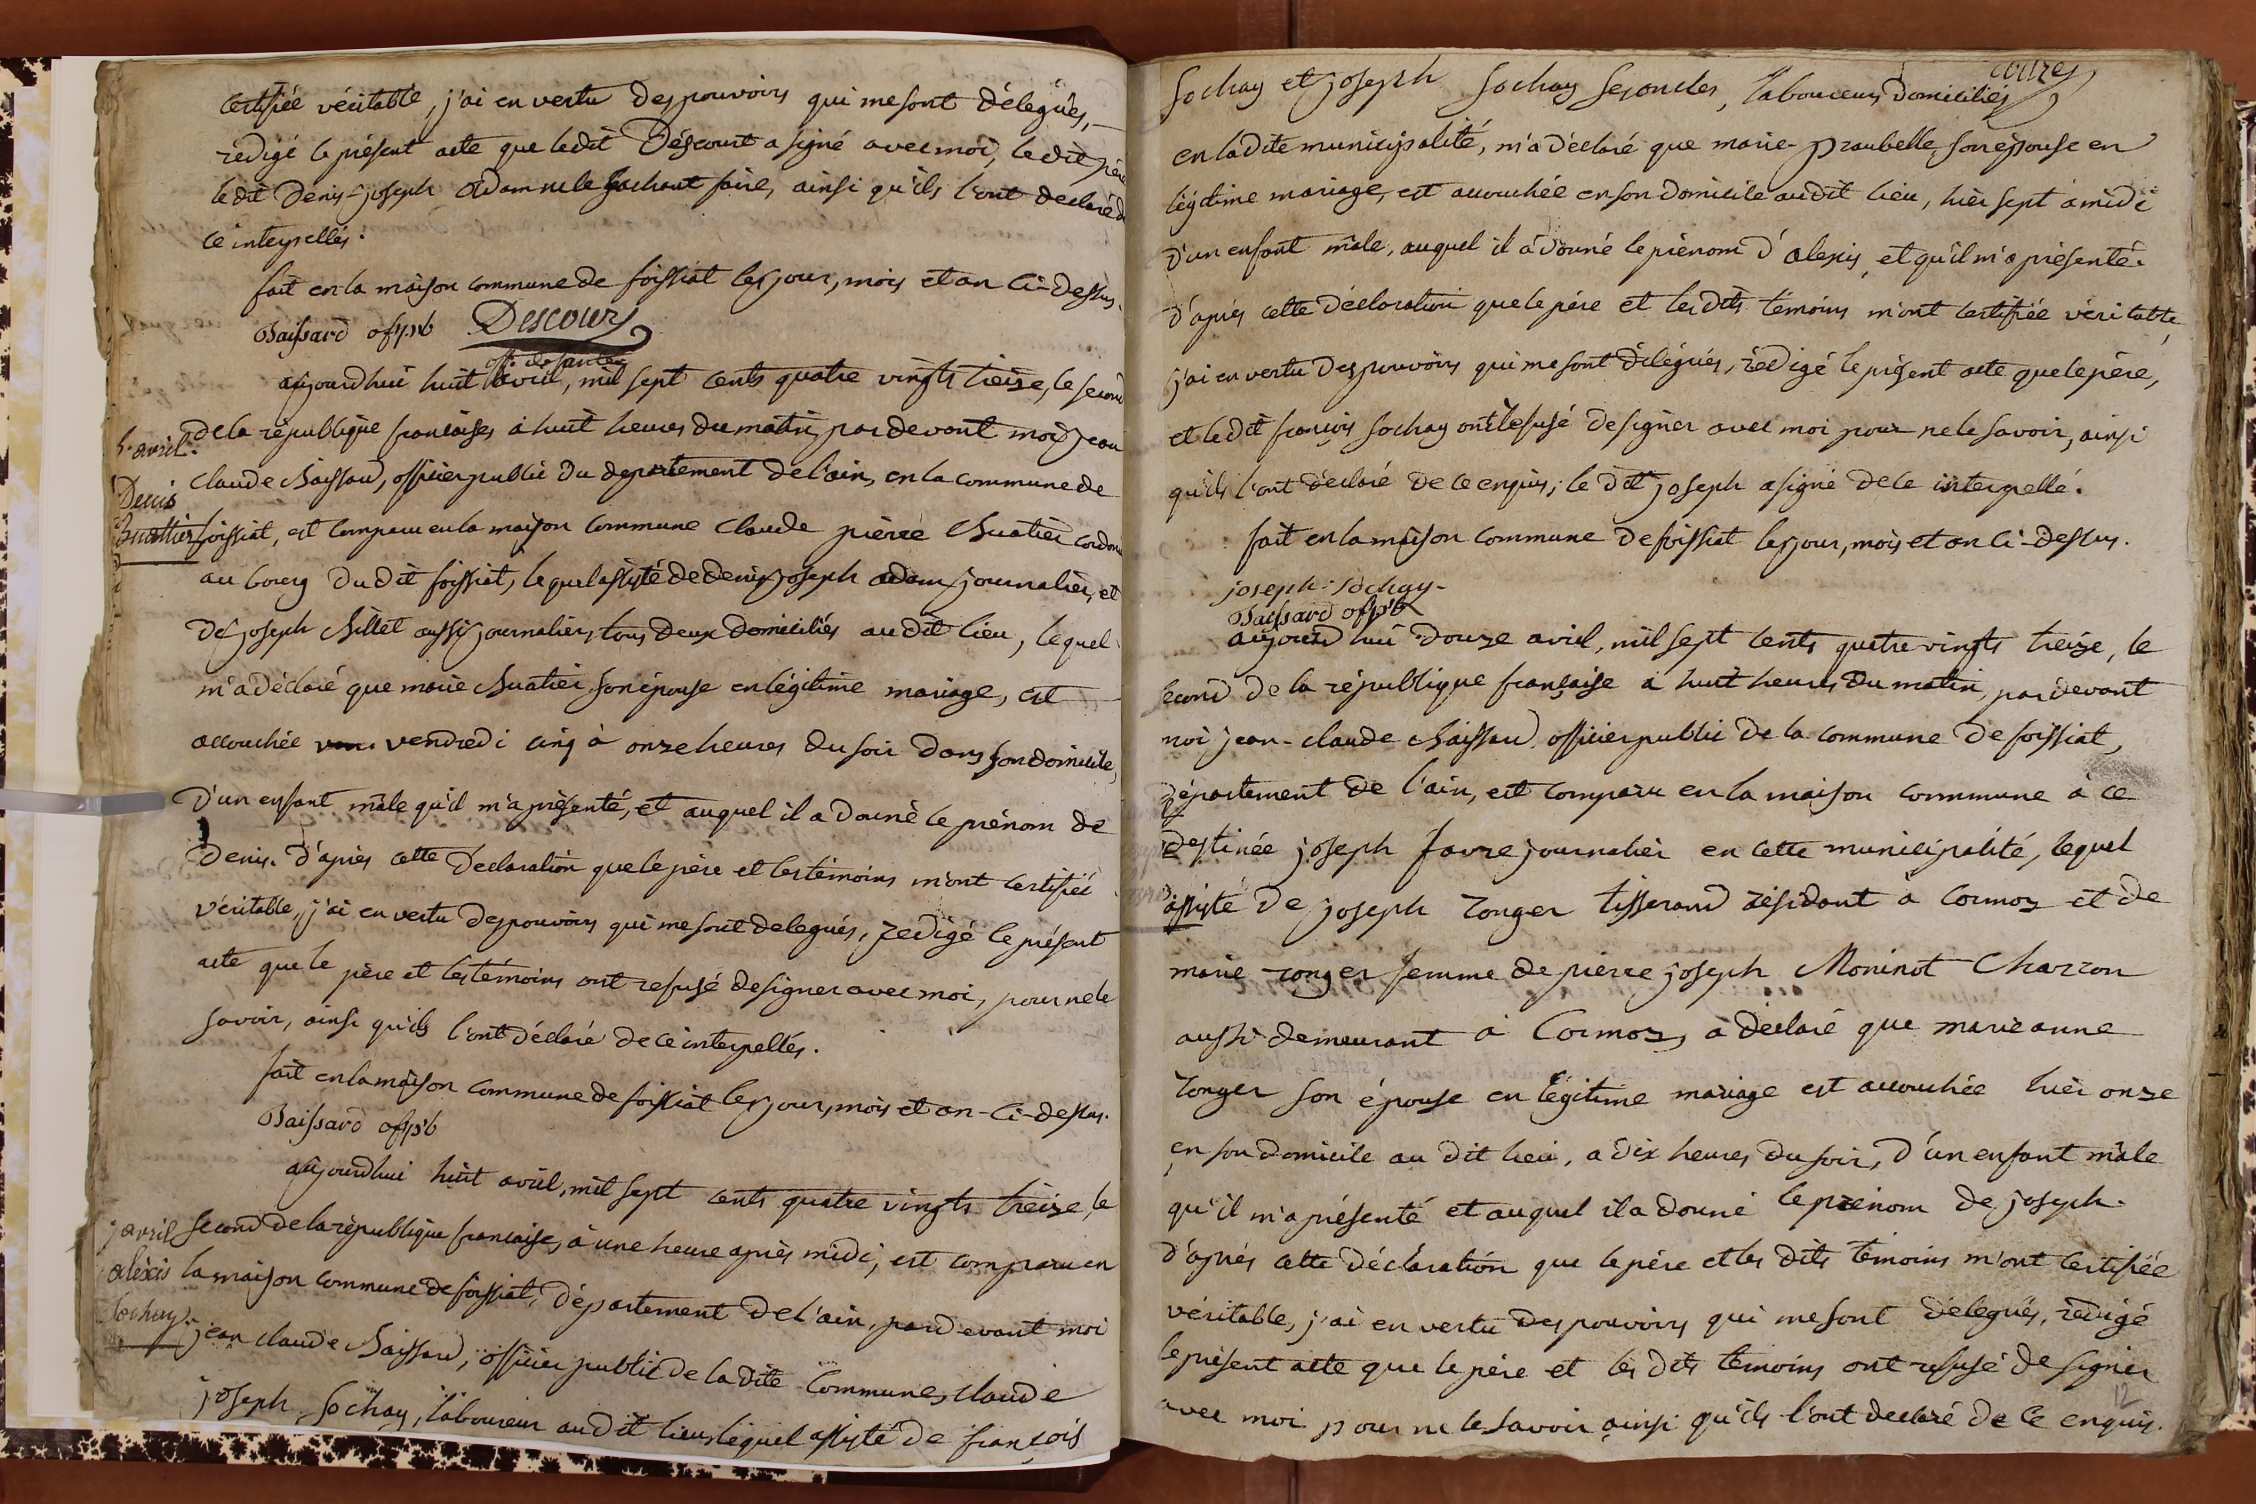 certifiée véritable, j'ai en vertu des pouvoirs qui me sont délegués,
redigé le présent acte que ledit Descourt a signé avec moi, le dit père
le dit Denis-joseph Adam ne le sachant faire, ainsi qu'ils l'ont declaré de
ce interpellés.
fait en la maison commune de foissiat les jour, mois et an ci-dessus.
Baissard ofpb Descours
off. de santé
aujourdhui huit avril, mil sept cents quatre vingts treize, le second
de la république francaise, à huit heures du matin, par devant moi jean
avril.
claude Baissard, officier public du departement de l'ain, en la commune de
Denis
Buattier
foissiat, est comparu en la maison commune claude pierre Buatier cordon
au bourg du dit foissiat, lequel assisté de denis joseph adam journalier, et
de joseph Billet aussi journalier, tous deux domiciliés au dit lieu, lequel
m'a déclaré que marie Buatier, son épouse en légitime mariage, est
accouchée vendredi cinq à onze heures du soir dans son domicile,
D'un enfant mâle qu'il m'a présenté, et auquel il a donné le prénom de
Denis. D'après cette Declaration que le père et les témoins m'ont certifiée
véritable, j'ai en vertu des pouvoirs qui me sont delegués, redigé le présent
acte que le père et les témoins ont refusé de signer avec moi, pour ne le
savoir, ainsi qu'ils l'ont déclaré de ce interpellés.
fait en la maison commune de foissiat les jour, mois et an-ci-dessus.
Baissard ofpb
aujourdhui huit avril, mil sept cents quatre vingts treize, le
7 avril
second de la république francaise, à une heure après midi, est comparu en
alexis
la maison commune de foissiat, département de l'ain, pardevant moi
Sochay.
jean claude Baissard, officier public de la dite Commune, claude
joseph Sochay, laboureur au dit lieu, lequel assisté de françois
Sochay et joseph Sochay ses oncles, laboureurs domiciliés
en la dite municipalité, m'a déclaré que marie Praubelle, son épouse en
légitime mariage, est accouchée en son domicile au dit lieu, hier sept à midi
d'un enfant mâle, auquel il a donné le prénom d'alexis, et qu'il m'a présenté.
d'après cette déclaration que le père et les dits témoins m'ont certifiée véritable,
j'ai en vertu des pouvoirs qui me sont délégués, rédigé le présent acte que le père,
et le dit françois Sochay ont refusé de signer avec moi pour ne le savoir, ainsi
qu'ils l'ont déclaré de ce enquis; le dit joseph a signé de ce interpellé.
fait en la maison commune de foissiat les jour, mois et an ci-dessus.
joseph-sochay-
Baissard ofpb
aujourdhui douze avril, mil sept cents quatre vingts treize, le
second de la république française à huit heures du matin, pardevant
moi jean-claude Baissard officier public de la commune de foissiat,
département de l'ain, est comparu en la maison commune à ce
destinée joseph favre journalier en cette municipalité, lequel
assisté de joseph ronger tisserand résidant à Cormoz et de
marie ronger femme de pierre joseph Moninot Charron
aussi demeurant à Cormoz, a déclaré que marie anne
ronger son épouse en légitime mariage est accouchée hier onze
en son domicile au dit lieu, à dix heures du soir, d'un enfant mâle
qu'il m'a présenté et auquel il a donné le prénom de joseph.
d'après cette déclaration que le père et les dits témoins m'ont certifiée
véritable, j'ai en vertu des pouvoirs qui me sont délegués, rédigé
le présent acte que le père et les dits témoins ont refusé de signer
avec moi pour ne le savoir ainsi qu'ils l'ont declaré de ce enquis.
12